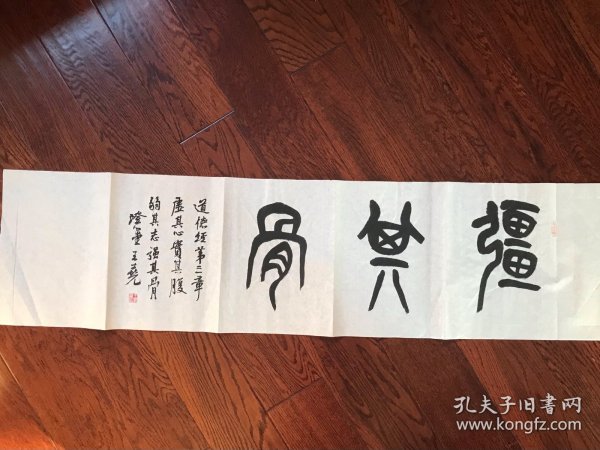 彊其骨
道德经第三章
虚其心实其腹
弱其志强其骨
王尧
孔夫子旧书网
www.kongfz.com